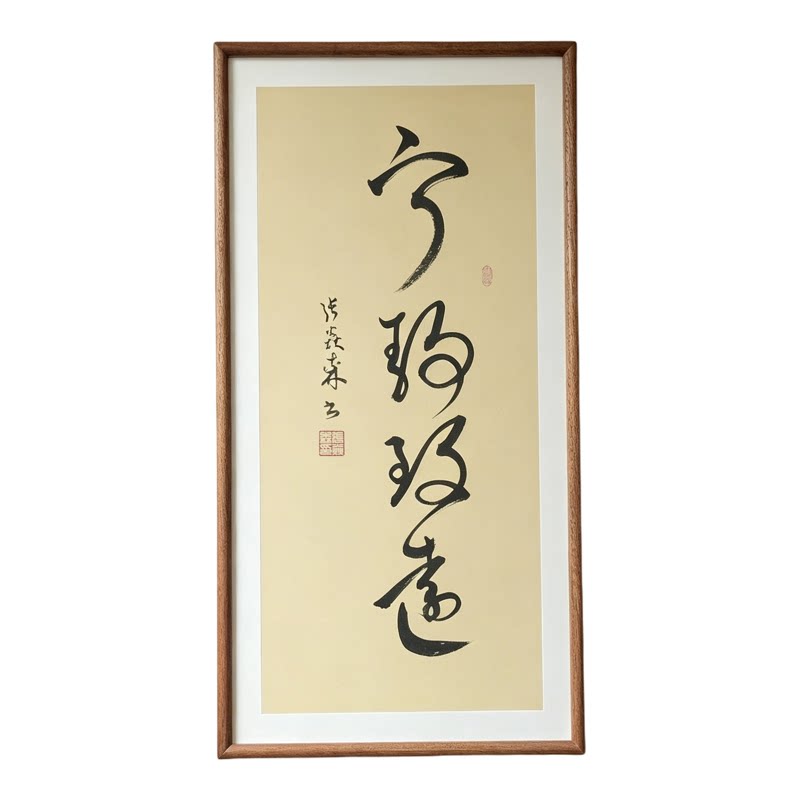 宁静致远
张焱森书